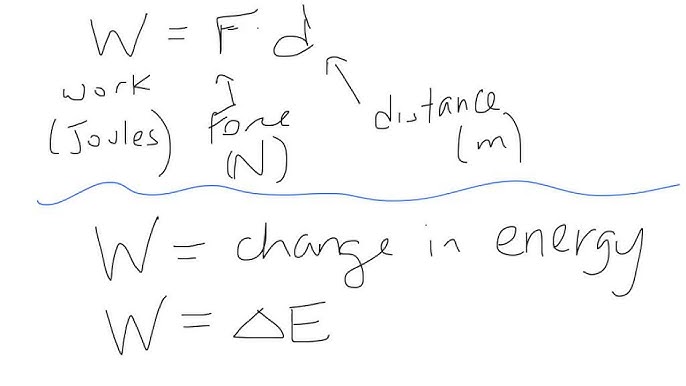 W = F · d
work
(Joules)
force
(N)
distance
(m)
W = change in energy
W = ΔE